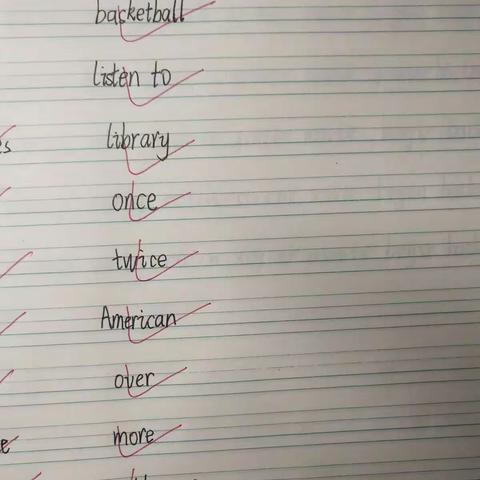 basketball
listen to
library
once
twice
American
over
more